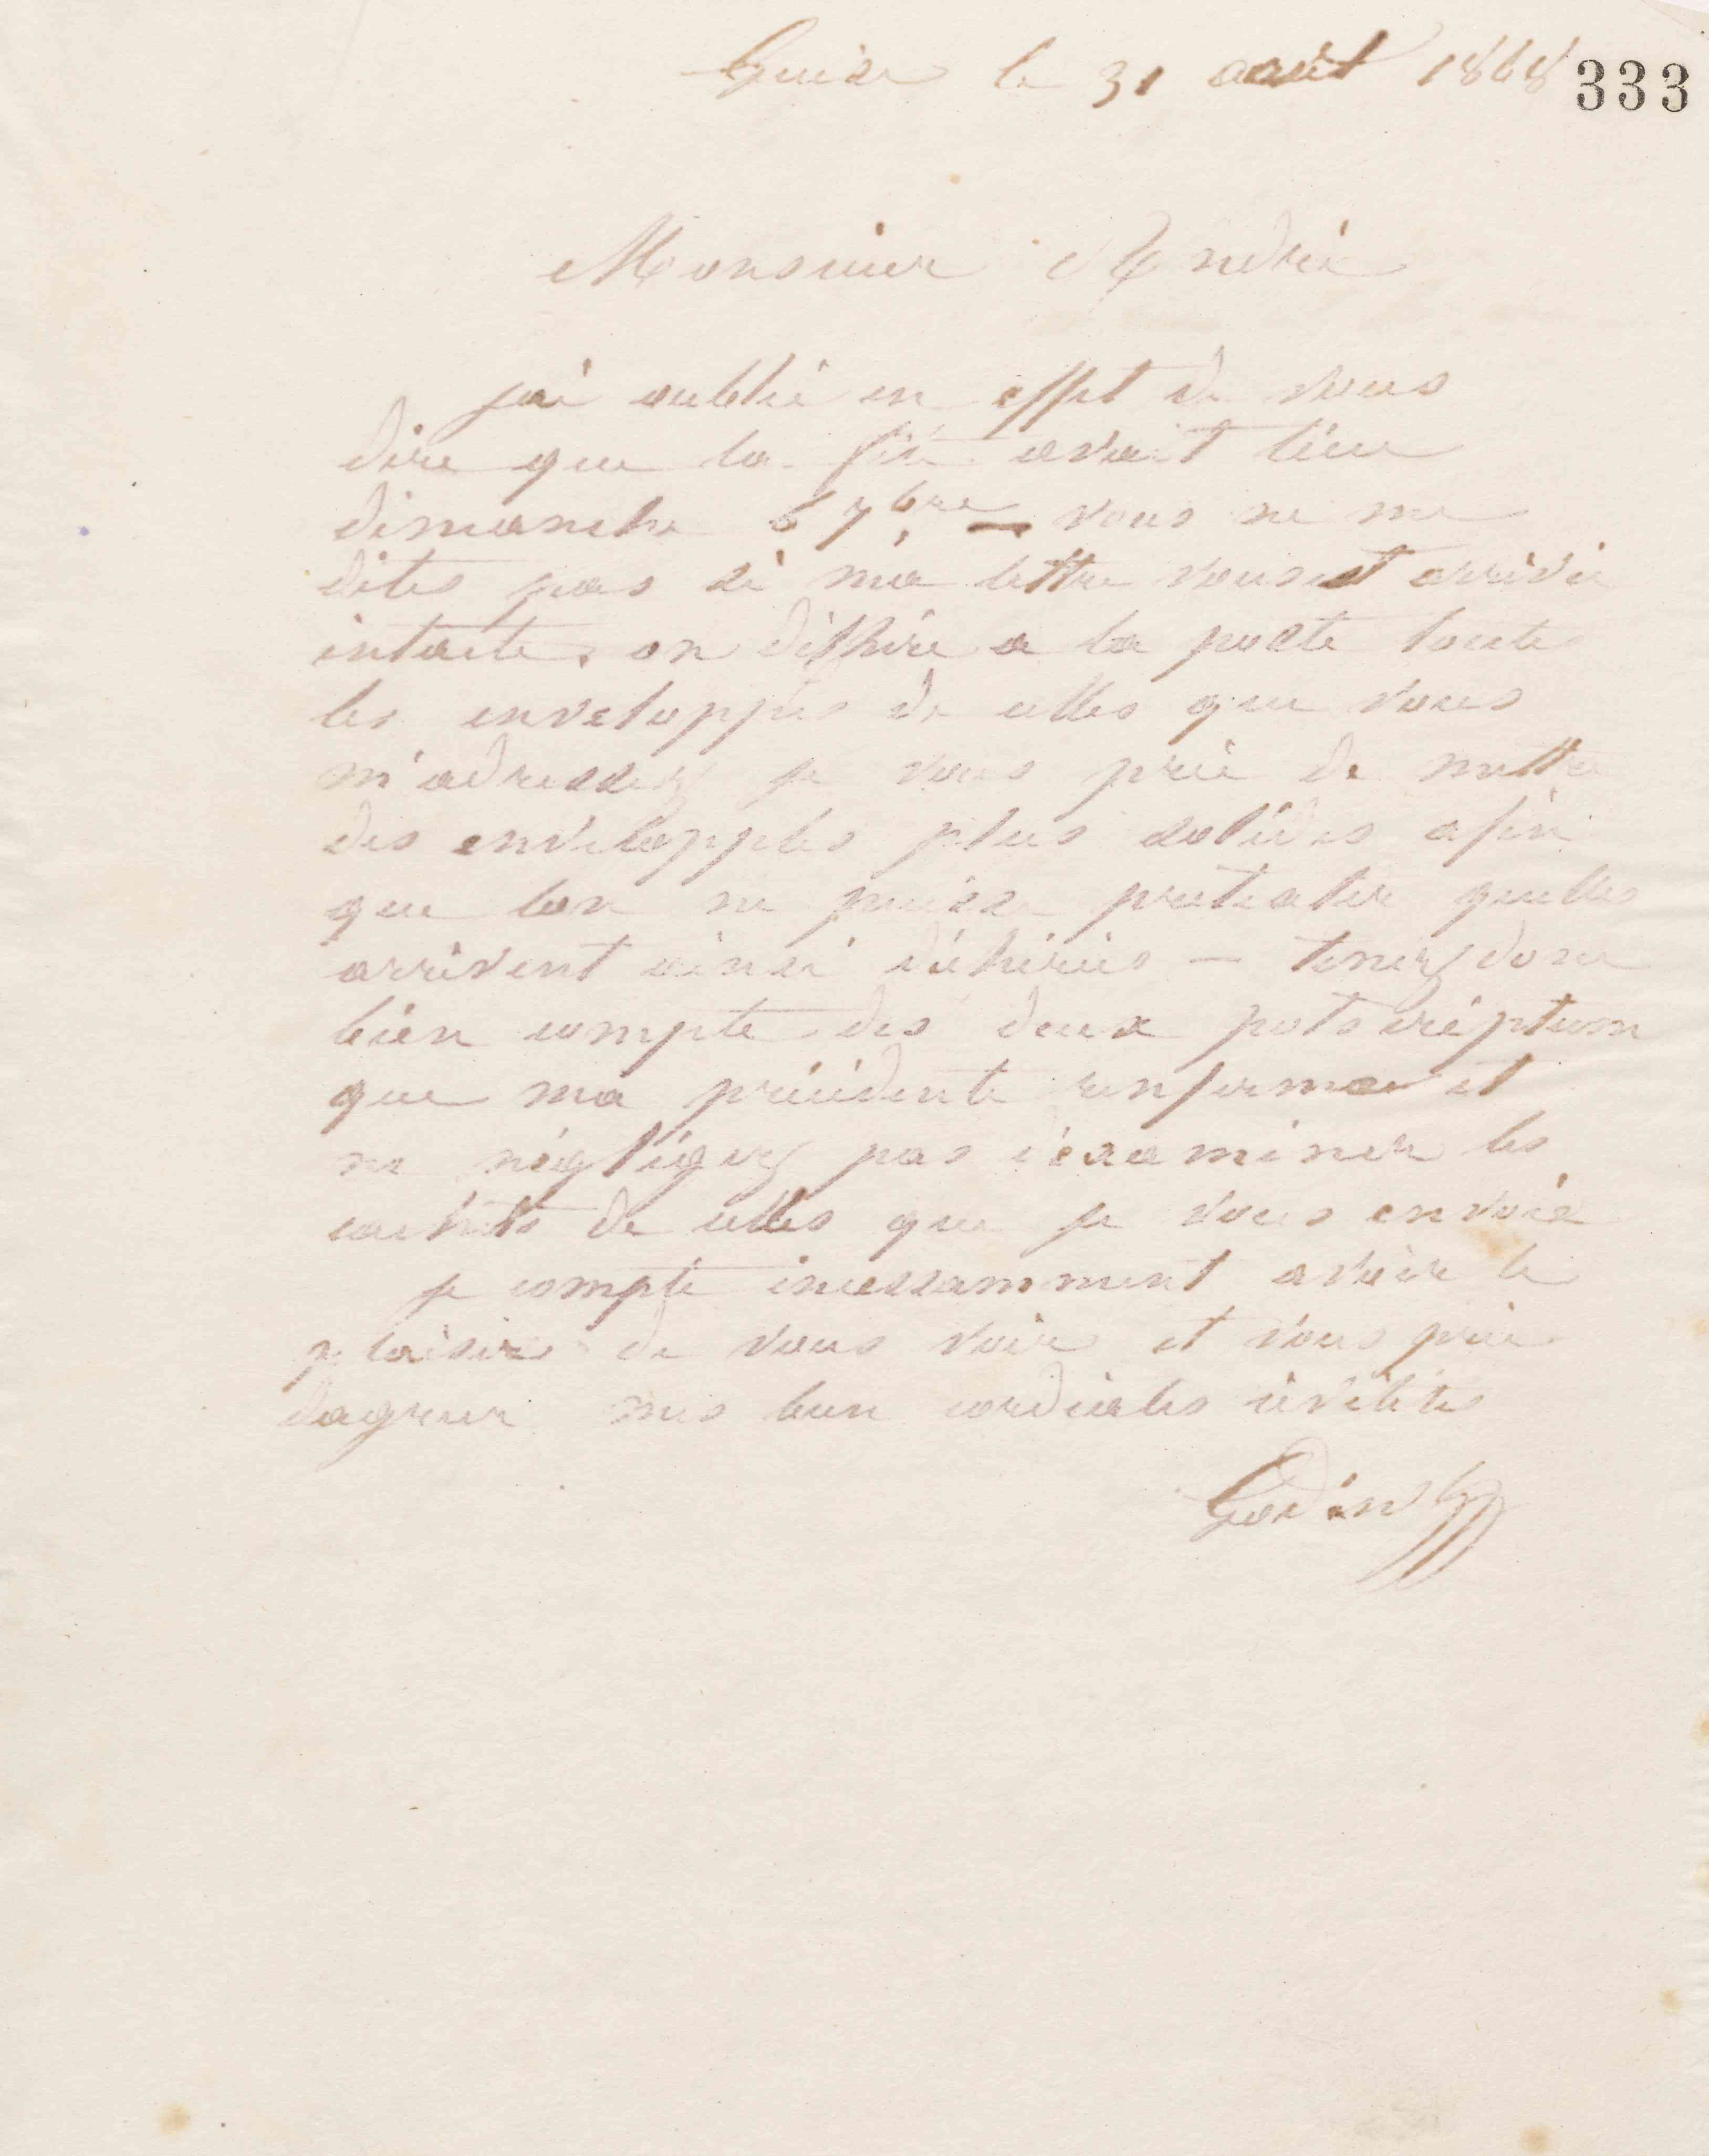 Guise le 31 août 1868 333
Monsieur André
jai oublié en effet de vous
dire que la fête avait lieu
dimanche 6 7bre — vous ne me
dites pas si ma lettre vous est arrivée
intacte. on déchire a la poste toute
les enveloppes de celles que vous
m'adressez je vous prie de mettre
des enveloppes plus solides afin
que lon ne puisse prétexter quelles
arrivent ainsi déchirées — tenez donc
bien compte des deux potscriptum
que ma précédente renfermait et
ne négligez pas d'examiner les
cachets de celles que je vous envoie
je compte incessamment avoir le
plaisir de vous voir et vous prie
dagréer mes bien cordiales civilités
Godin